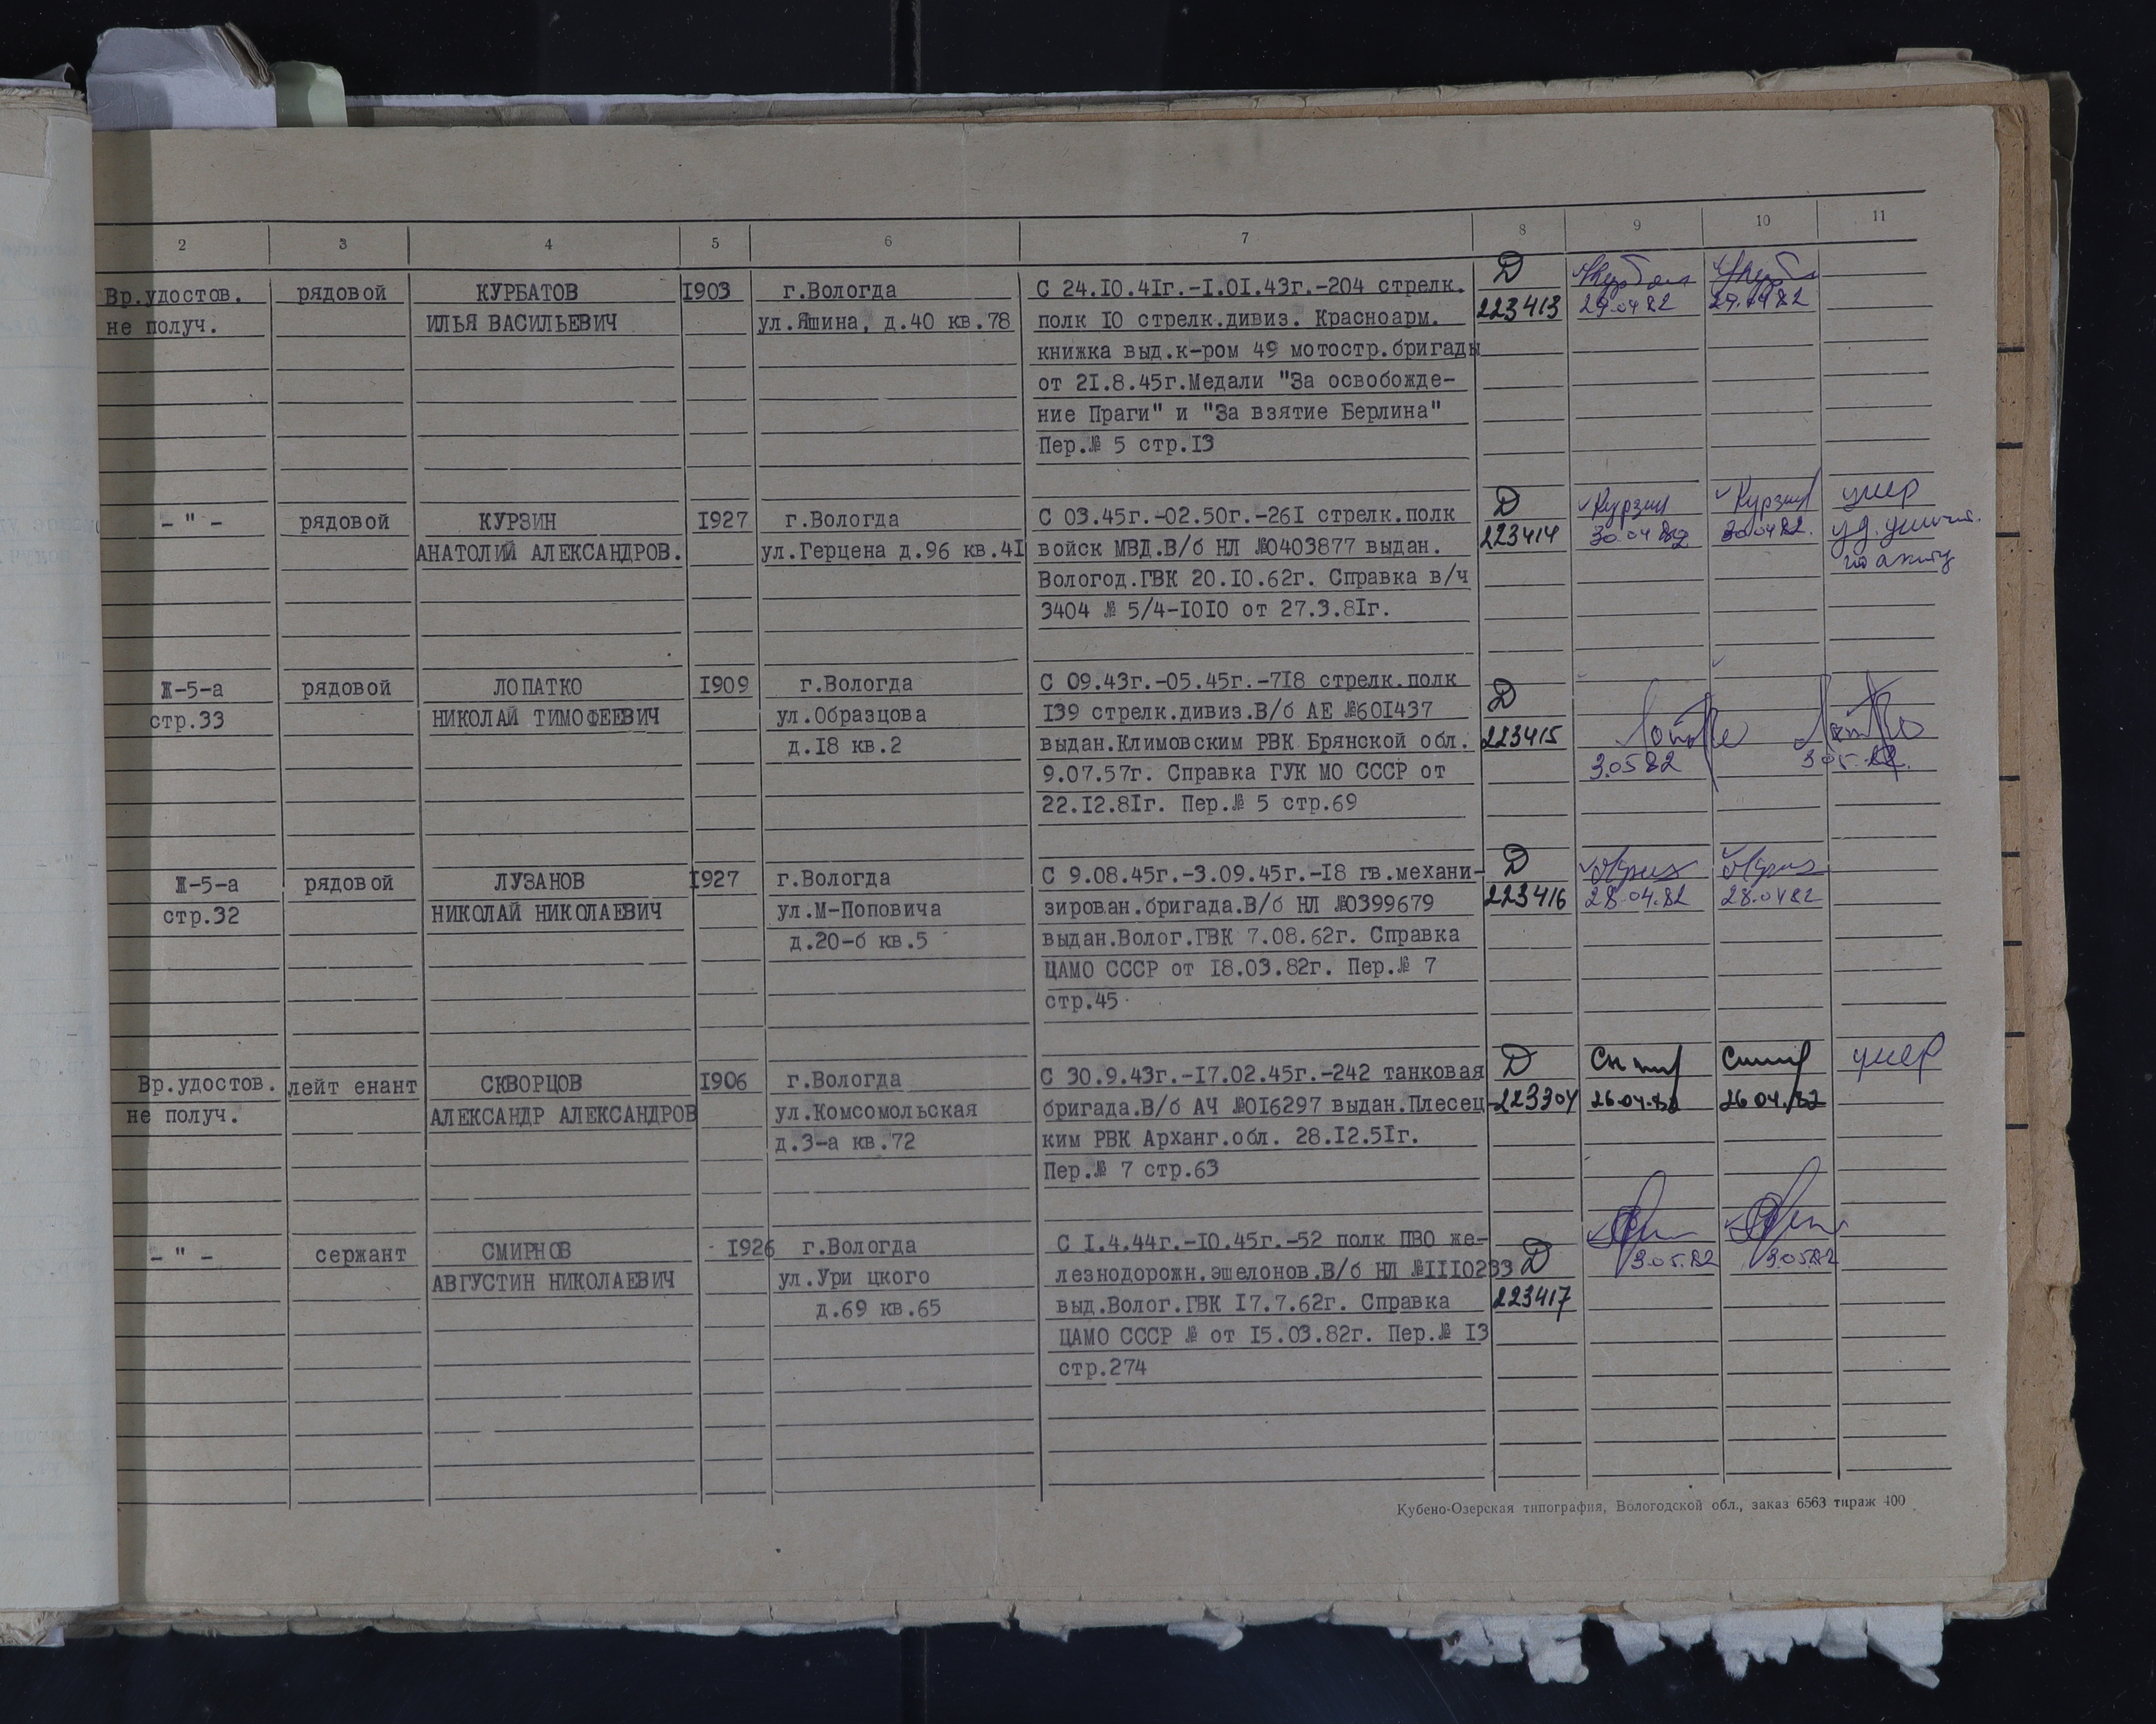 2 3 4 5 6 7 8 9 10 11
Вр.удостов. рядовой КУРБАТОВ I903 г.Вологда С 24.I0.4Iг.-I.0I.43г.-204 стрелк. Д
не получ. ИЛЬЯ ВАСИЛЬЕВИЧ ул.Яшина, д.40 кв.78 полк I0 стрелк.дивиз. Красноарм. 223413 29.04 82 29.04 82
книжка выд.к-ром 49 мотостр.бригады
от 2I.8.45г.Медали "За освобожде-
ние Праги" и "За взятие Берлина"
Пер.№ 5 стр.I3
- " - рядовой КУРЗИН I927 г.Вологда С 03.45г.-02.50г.-26I стрелк.полк Д Курзин Курзин умер
АНАТОЛИЙ АЛЕКСАНДРОВ. ул.Герцена д.96 кв.4I войск МВД.В/б НЛ №0403877 выдан. 223414 30.04 82 30.04 82. уд. уничт.
Вологод.ГВК 20.I0.62г. Справка в/ч по акту
3404 № 5/4-I0I0 от 27.3.8Iг.
Ж-5-а рядовой ЛОПАТКО I909 г.Вологда С 09.43г.-05.45г.-7I8 стрелк.полк Д
стр.33 НИКОЛАЙ ТИМОФЕЕВИЧ ул.Образцова I39 стрелк.дивиз.В/б АЕ №60I437
д.I8 кв.2 выдан.Климовским РВК Брянской обл. 223415
9.07.57г. Справка ГУК МО СССР от 3.05 82 3 05. 82.
22.I2.8Iг. Пер.№ 5 стр.69
Ж-5-а рядовой ЛУЗАНОВ I927 г.Вологда С 9.08.45г.-3.09.45г.-I8 гв.механи- Д
стр.32 НИКОЛАЙ НИКОЛАЕВИЧ ул.М-Поповича зирован.бригада.В/б НЛ №0399679 223416 28.04.82 28.04 82
д.20-б кв.5 выдан.Волог.ГВК 7.08.62г. Справка
ЦАМО СССР от I8.03.82г. Пер.№ 7
стр.45
Вр.удостов. лейт енант СКВОРЦОВ I906 г.Вологда С 30.9.43г.-I7.02.45г.-242 танковая Д умер
не получ. АЛЕКСАНДР АЛЕКСАНДРОВ ул.Комсомольская бригада.В/б АЧ №0I6297 выдан.Плесец- 223304 26.04.82 26 04.82
д.3-а кв.72 ким РВК Арханг.обл. 28.I2.5Iг.
Пер.№ 7 стр.63
- " - сержант СМИРНОВ I926 г.Вологда С I.4.44г.-I0.45г.-52 полк ПВО же- Д 3.05.82 3.05.82
АВГУСТИН НИКОЛАЕВИЧ ул.Ури цкого лезнодорожн.эшелонов.В/б НЛ №III0233
д.69 кв.65 выд.Волог.ГВК I7.7.62г. Справка 223417
ЦАМО СССР № от I5.03.82г. Пер.№ I3
стр.274
Кубено-Озерская типография, Вологодской обл., заказ 6563 тираж 400